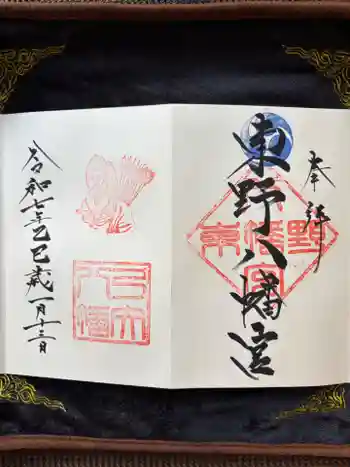 奉拝
東野八幡宮
東野八幡宮
令和七年乙巳歳一月十三日